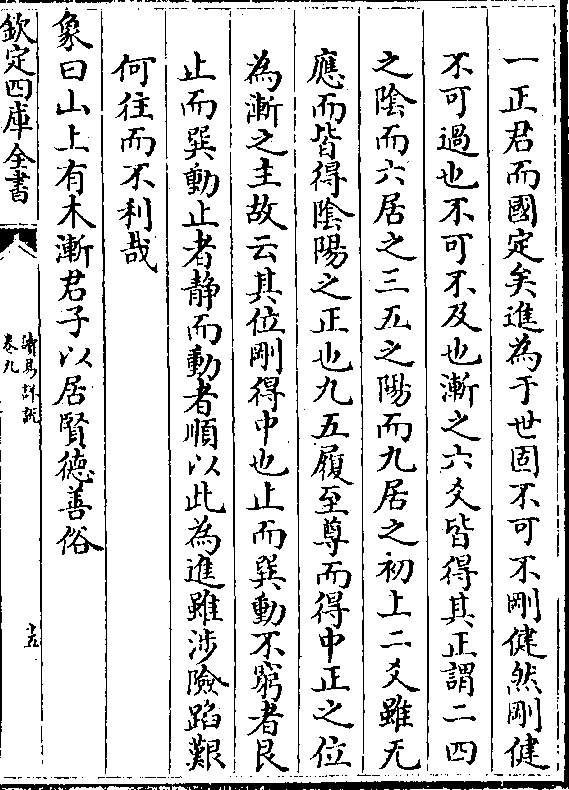 一正君而國定矣進為于世固不可不剛健然剛健
不可過也不可不及也漸之六爻皆得其正謂二四
之陰而六居之三五之陽而九居之初上二爻雖无
應而皆得陰陽之正也九五履至尊而得中正之位
為漸之主故云其位剛得中也止而巽動不窮者艮
止而巽動止者静而動者順以此為進雖涉險蹈艱
何往而不利哉
象曰山上有木漸君子以居賢德善俗
欽定四庫全書
讀易詳說
卷九
十五